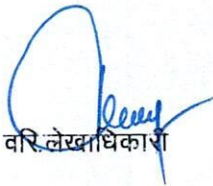 वरि. लेखाधिकारी